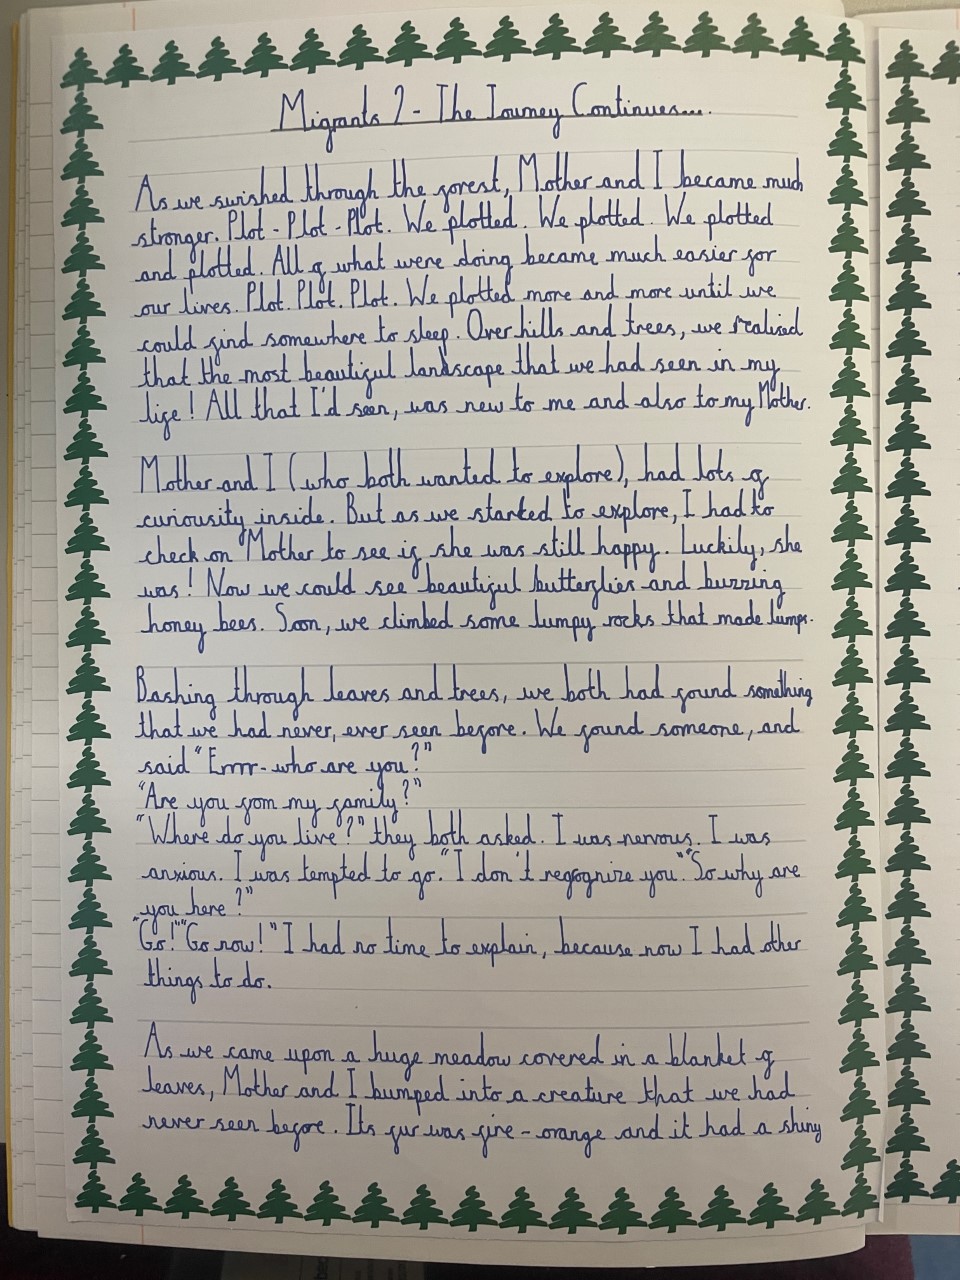 Migrants 2 - The Journey Continues....
As we swished through the forest, Mother and I became much
stronger. Plot - Plot - Plot. We plotted. We plotted. We plotted
and plotted. All of what were doing became much easier for
our lives. Plot. Plot. Plot. We plotted more and more until we
could find somewhere to sleep. Over hills and trees, we realised
that the most beautiful landscape that we had seen in my
life! All that I'd seen, was new to me and also to my Mother.
Mother and I (who both wanted to explore), had lots of
curiousity inside. But as we started to explore, I had to
check on Mother to see if she was still happy. Luckily, she
was! Now we could see beautiful butterflies and buzzing
honey bees. Soon, we climbed some lumpy rocks that made lumps.
Bashing through leaves and trees, we both had found something
that we had never, ever seen before. We found someone, and
said "Errrr - who are you?"
"Are you from my family?"
"Where do you live?" they both asked. I was nervous. I was
anxious. I was tempted to go. "I don't regognize you." "So why are
you here?"
"Go!" "Go now!" I had no time to explain, because now I had other
things to do.
As we came upon a huge meadow covered in a blanket of
leaves, Mother and I bumped into a creature that we had
never seen before. Its fur was fire - orange and it had a shiny